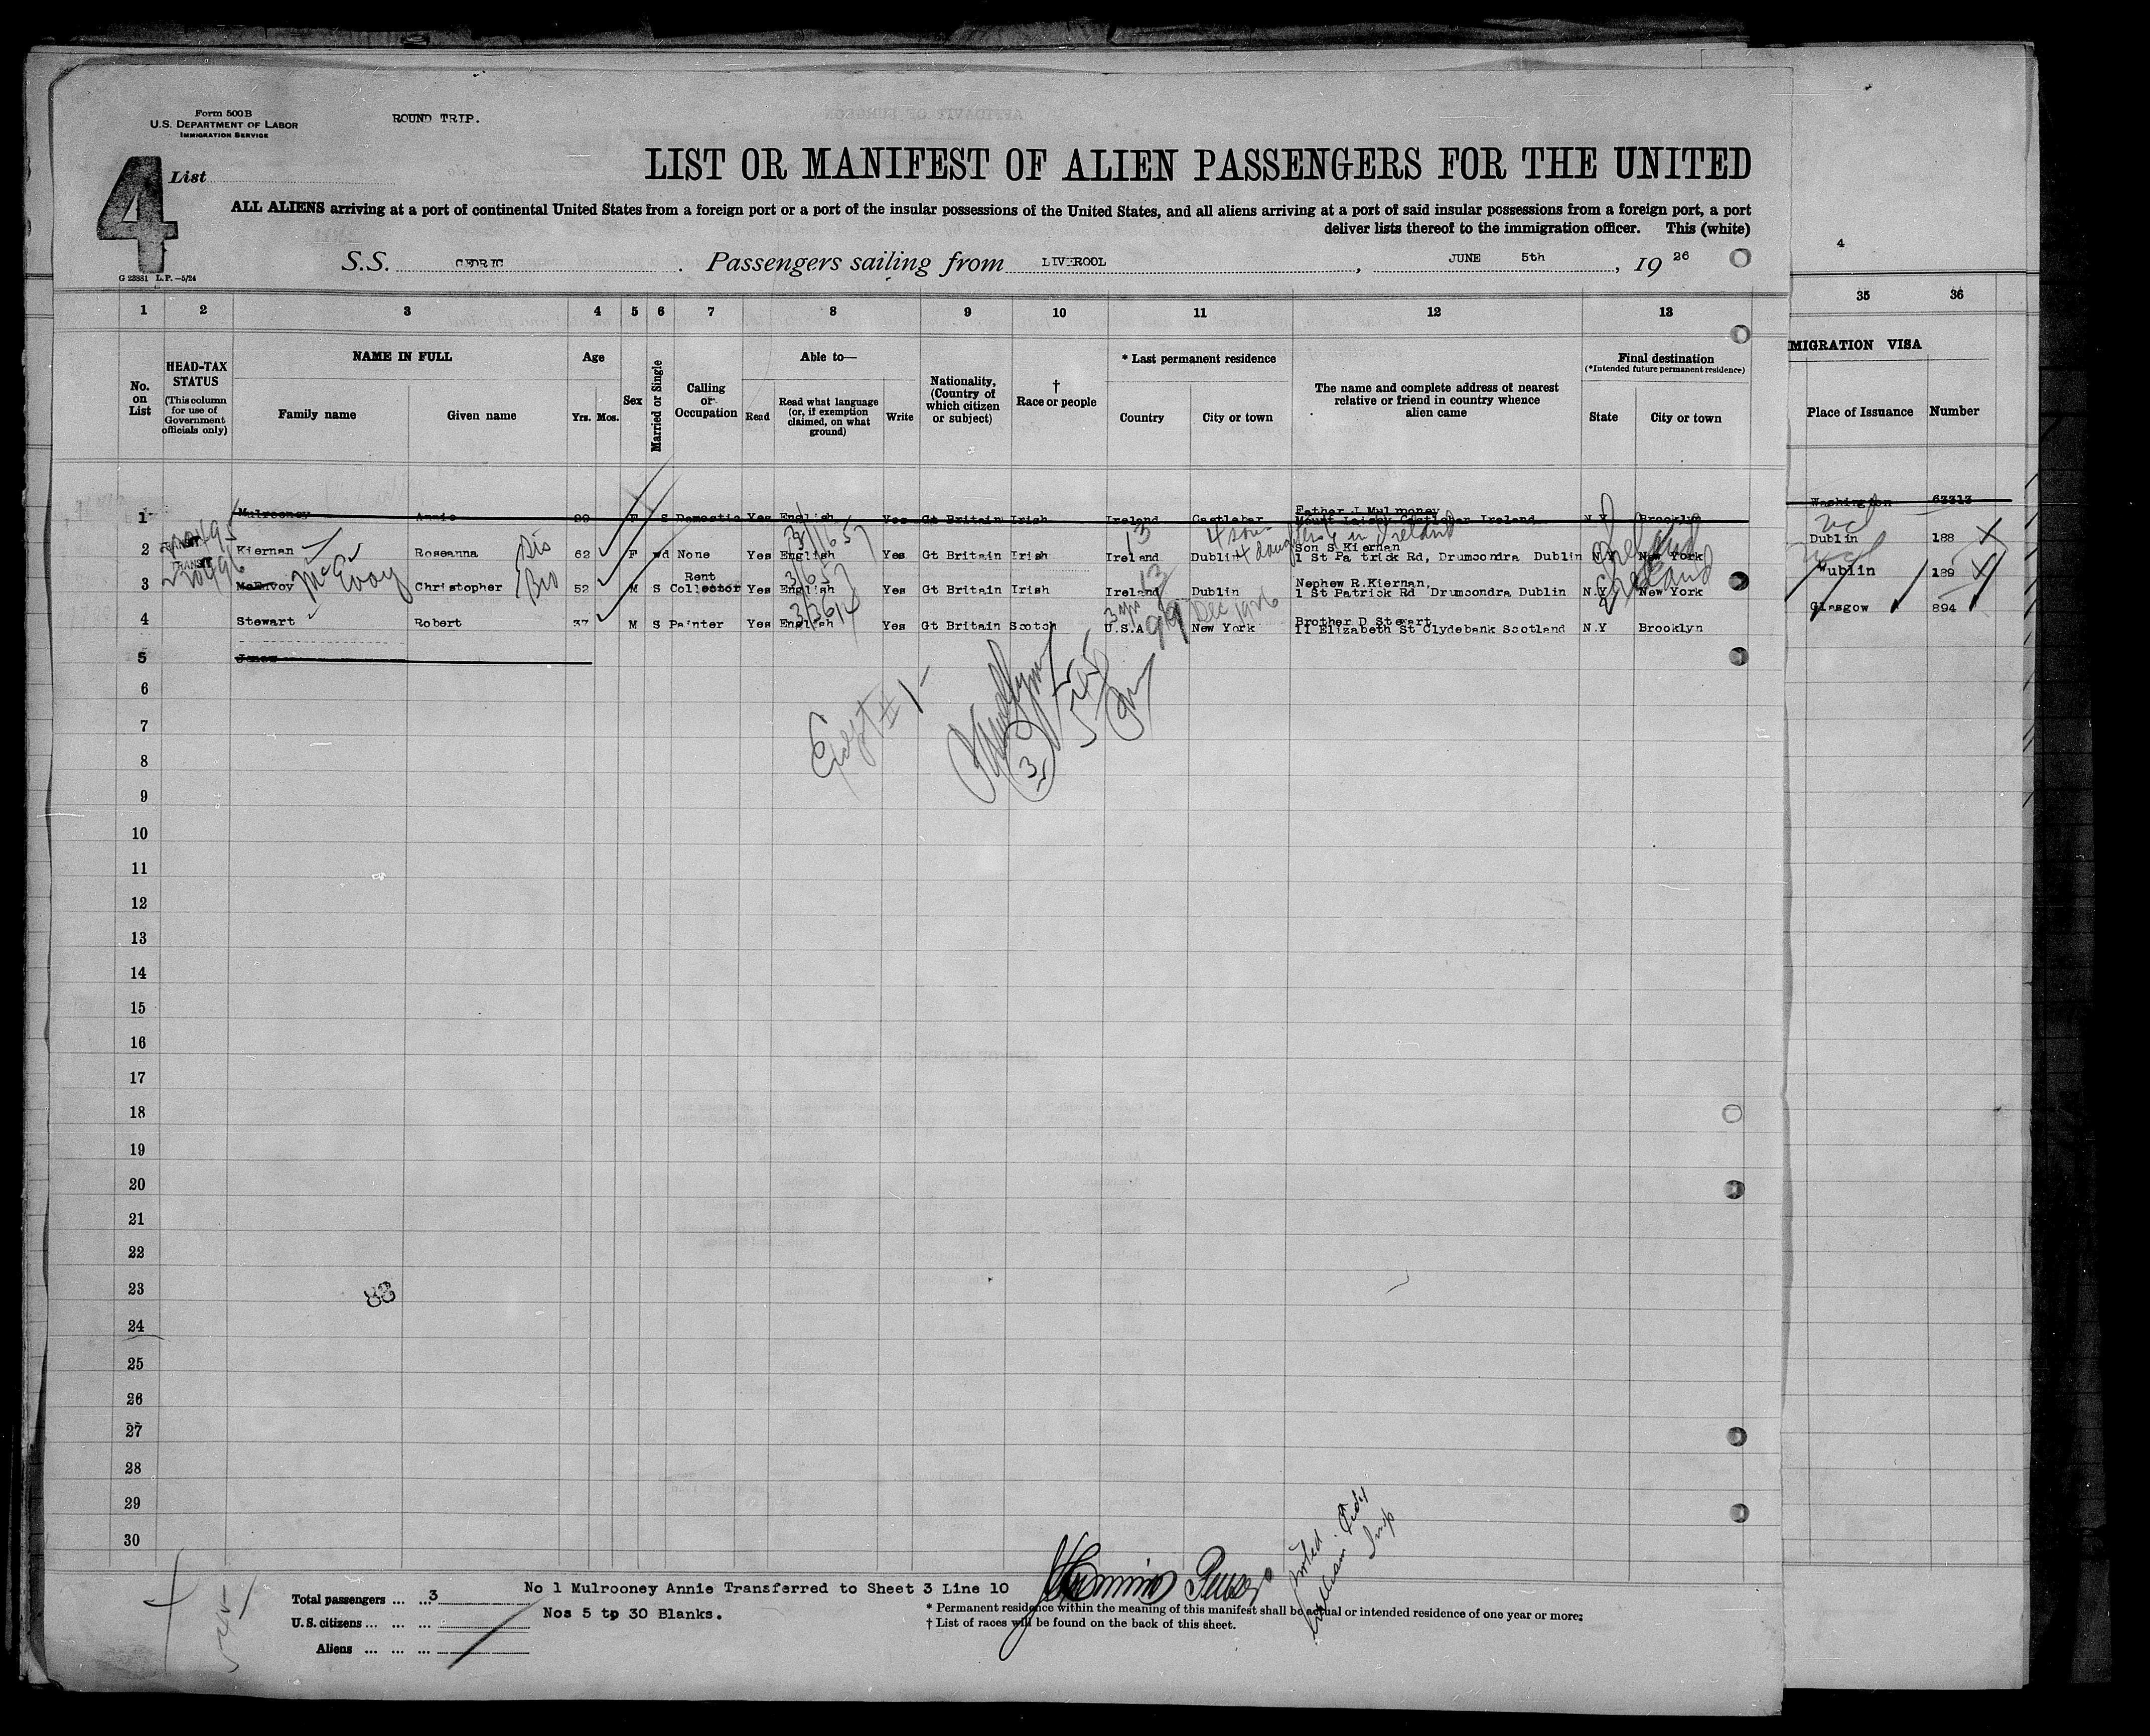 Form 500B
U.S. DEPARTMENT OF LABOR
IMMIGRATION SERVICE
ROUND TRIP.
4
List
LIST OR MANIFEST OF ALIEN PASSENGERS FOR THE UNITED
ALL ALIENS arriving at a port of continental United States from a foreign port or a port of the insular possessions of the United States, and all aliens arriving at a port of said insular possessions from a foreign port, a port
deliver lists thereof to the immigration officer. This (white)
G 23881 L.P.—5/24
S.S. CEDRIC. Passengers sailing from LIVEROOL, JUNE 5th, 19 26
4
1 2 3 4 5 6 7 8 9 10 11 12 13 35 36
No. on List
HEAD-TAX STATUS (This column for use of Government officials only)
NAME IN FULL
Family name Given name
Age
Yrs. Mos.
Sex
Married or Single
Calling or Occupation
Able to—
Read
Read what language (or, if exemption claimed, on what ground)
Write
Nationality, (Country of which citizen or subject)
† Race or people
* Last permanent residence
Country City or town
The name and complete address of nearest relative or friend in country whence alien came
Final destination
(*Intended future permanent residence)
State City or town
MIGRATION VISA
Place of Issuance Number
1 Mulrooney Annie F S Domestic Yes English Yes Gt Britain Irish Ireland Castlebar Father J Mulrooney Castlebar Ireland N.Y Brooklyn Washington 63313
4 sons
4 daughters in Ireland
2 Kiernan Roseanna 62 F wd None Yes English Yes Gt Britain Irish Ireland Dublin Son S Kiernan 1 St Pa trick Rd, Drumcondra Dublin N.Y New York Dublin 188
Ireland
3 McEnvoy McEvoy Christopher 52 M S Rent Collector Yes English Yes Gt Britain Irish Ireland Dublin Nephew R.Kiernan, 1 St Patrick Rd Drumcondra Dublin N.Y New York Wublin 189
Ireland
4 Stewart Robert 37 M S Painter Yes English Yes Gt Britain Scotch U.S.A New York Brother D Stewart 11 Elizabeth St Clydebank Scotland N.Y Brooklyn Glasgow 894
Dec 1926
5 Jones
6
7
8
9
10
11
12
13
14
15
16
17
18
19
20
21
22
23
24
25
26
27
28
29
30
83
Total passengers ... ...3
U.S. citizens ... ... ...
Aliens ... ... ...
No 1 Mulrooney Annie Transferred to Sheet 3 Line 10
Nos 5 to 30 Blanks.
* Permanent residence within the meaning of this manifest shall be actual or intended residence of one year or more;
† List of races will be found on the back of this sheet.